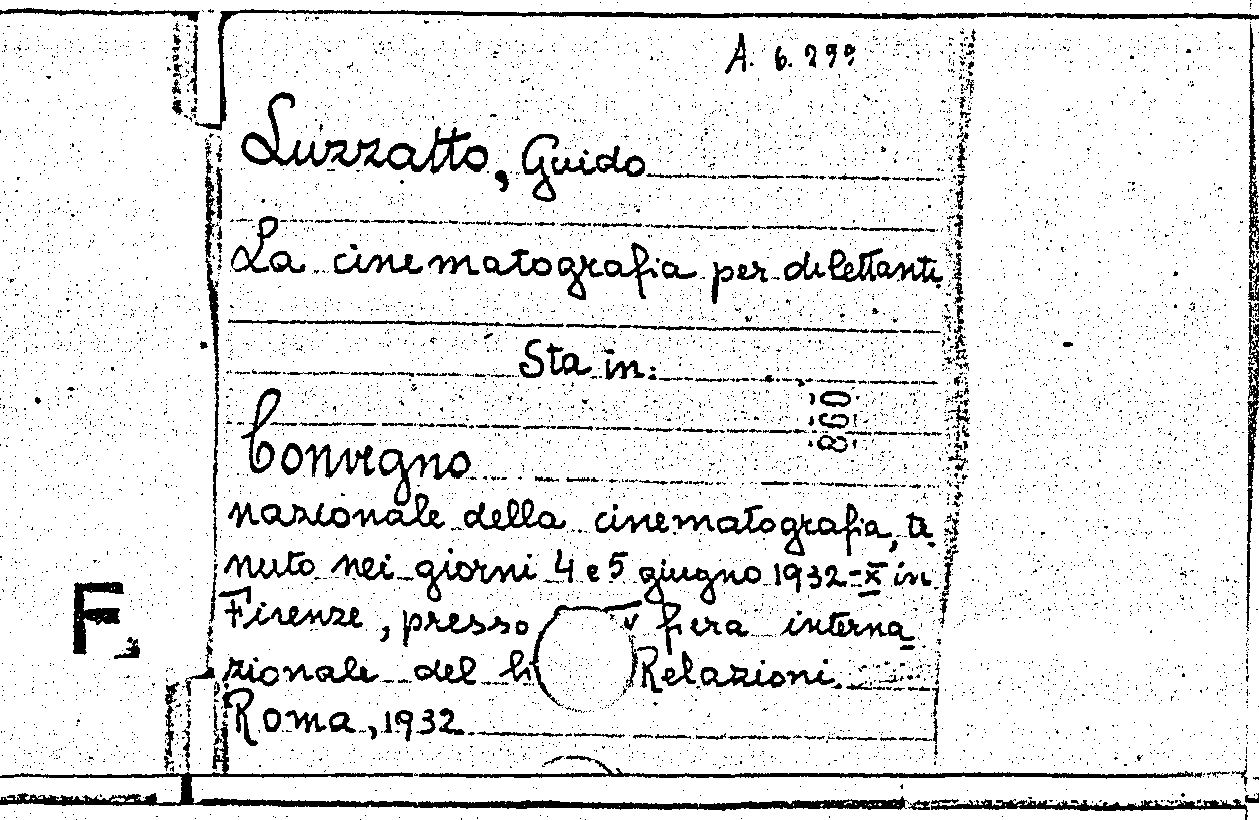 A. 6. 299
Luzzatto, Guido
La cinematografia per dilettanti
Sta in:
860
Convegno
nazionale della cinematografia, te
nuto nei giorni 4 e 5 giugno 1932-X in
Firenze, presso V fiera interna
zionale del li Relazioni.
Roma, 1932
F.